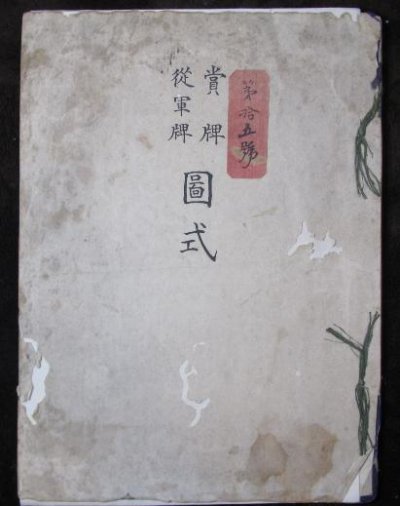 第拾五號
賞牌
從軍牌
圖式